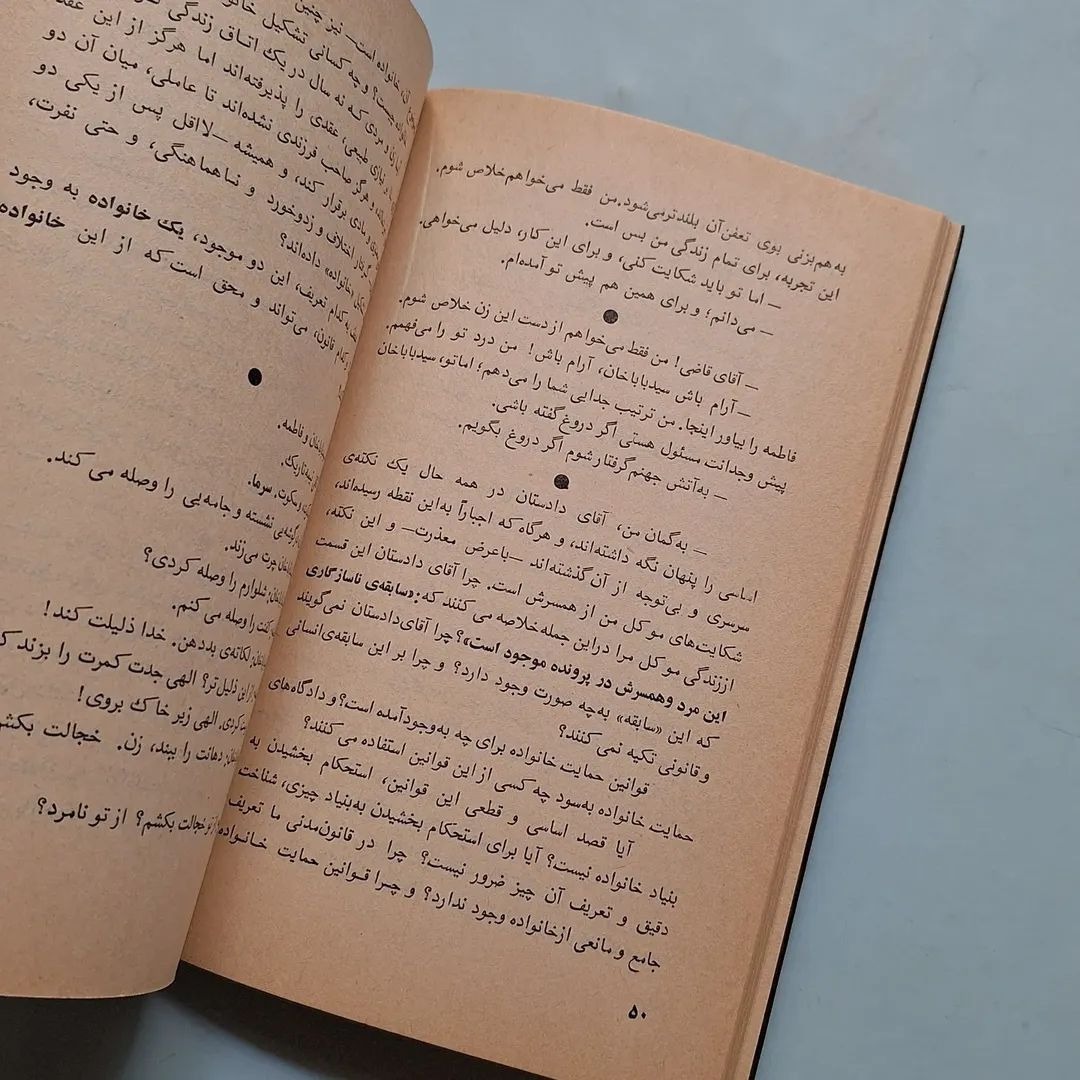 به هم‌بزنی بوی تعفن‌آن بلندترمی‌شود. من فقط می‌خواهم‌خلاص شوم.
این تجربه، برای تمام زندگی من بس است.
— اما تو باید شکایت کنی، و برای این کار، دلیل می‌خواهی.
— می‌دانم؛ و برای همین هم پیش تو آمده‌ام.
●
— آقای قاضی! من فقط می‌خواهم از دست این زن خلاص شوم.
— آرام باش سیدباباخان، آرام باش! من درد تو را می‌فهمم.
فاطمه را بیاور اینجا. من ترتیب جدایی شما را می‌دهم؛ اما تو، سیدباباخان
پیش وجدانت مسئول هستی اگر دروغ گفته باشی.
— به‌آتش جهنم‌گرفتار شوم اگر دروغ بگویم.
●
— به‌گمان من، آقای دادستان در همه حال یک نکته‌ی
اساسی را پنهان نگه داشته‌اند، و هرگاه که اجباراً به‌این نقطه رسیده‌اند،
سرسری و بی‌توجه از آن گذشته‌اند —باعرض معذرت— و این نکته،
شکایت‌های موکل من از همسرش است. چرا آقای دادستان این قسمت
اززندگی موکل مرا دراین جمله‌خلاصه می‌کنند که: «سابقه‌ی ناسازگاری
این مرد وهمسرش در پرونده موجود است»؟ چرا آقای‌دادستان نمی‌گویند
که این «سابقه» به‌چه صورت وجود دارد؟ و چرا بر این سابقه‌ی‌انسانی
وقانونی تکیه نمی‌کنند؟
قوانین حمایت خانواده برای چه به‌وجودآمده است؟ و دادگاه‌های
حمایت خانواده به‌سود چه کسی از این قوانین استفاده می‌کنند؟
آیا قصد اساسی و قطعی این قوانین، استحکام بخشیدن به
بنیاد خانواده نیست؟ آیا برای استحکام بخشیدن به‌بنیاد چیزی، شناخت
دقیق و تعریف آن چیز ضرور نیست؟ چرا در قانون‌مدنی ما تعریف
جامع و مانعی ازخانواده وجود ندارد؟ و چرا قوانین حمایت خانواده
۵۰
خانواده است— نیز چنین
چیست؟ و چه کسانی تشکیل
و مردی که نه سال در یک اتاق زندگی
طبیعی، عقدی را پذیرفته‌اند اما هرگز از این
و هرگز صاحب فرزندی نشده‌اند تا عاملی، میان آن دو
و مادی برقرار کند، و همیشه —لااقل پس از یکی دو
گرفتار اختلاف و زدوخورد و ناهماهنگی، و حتی نفرت،
«خانواده» داده‌اند؟
به‌کدام تعریف، این دو موجود، یک خانواده به وجود
کدام قانون، می‌تواند و محق است که از این خانواده
●
و فاطمه.
سکوت. سرما.
نشسته و جامه‌یی را وصله می‌کند.
چرت می‌زند.
شلوارم را وصله کردی؟
را وصله می‌کنم.
لکاته‌ی بددهن. خدا ذلیلت کند!
از این ذلیل‌تر؟ الهی جدت کمرت را بزند
الهی زیر خاک بروی!
دهانت را ببند، زن. خجالت بکش
از تو خجالت بکشم؟ از تو نامرد؟